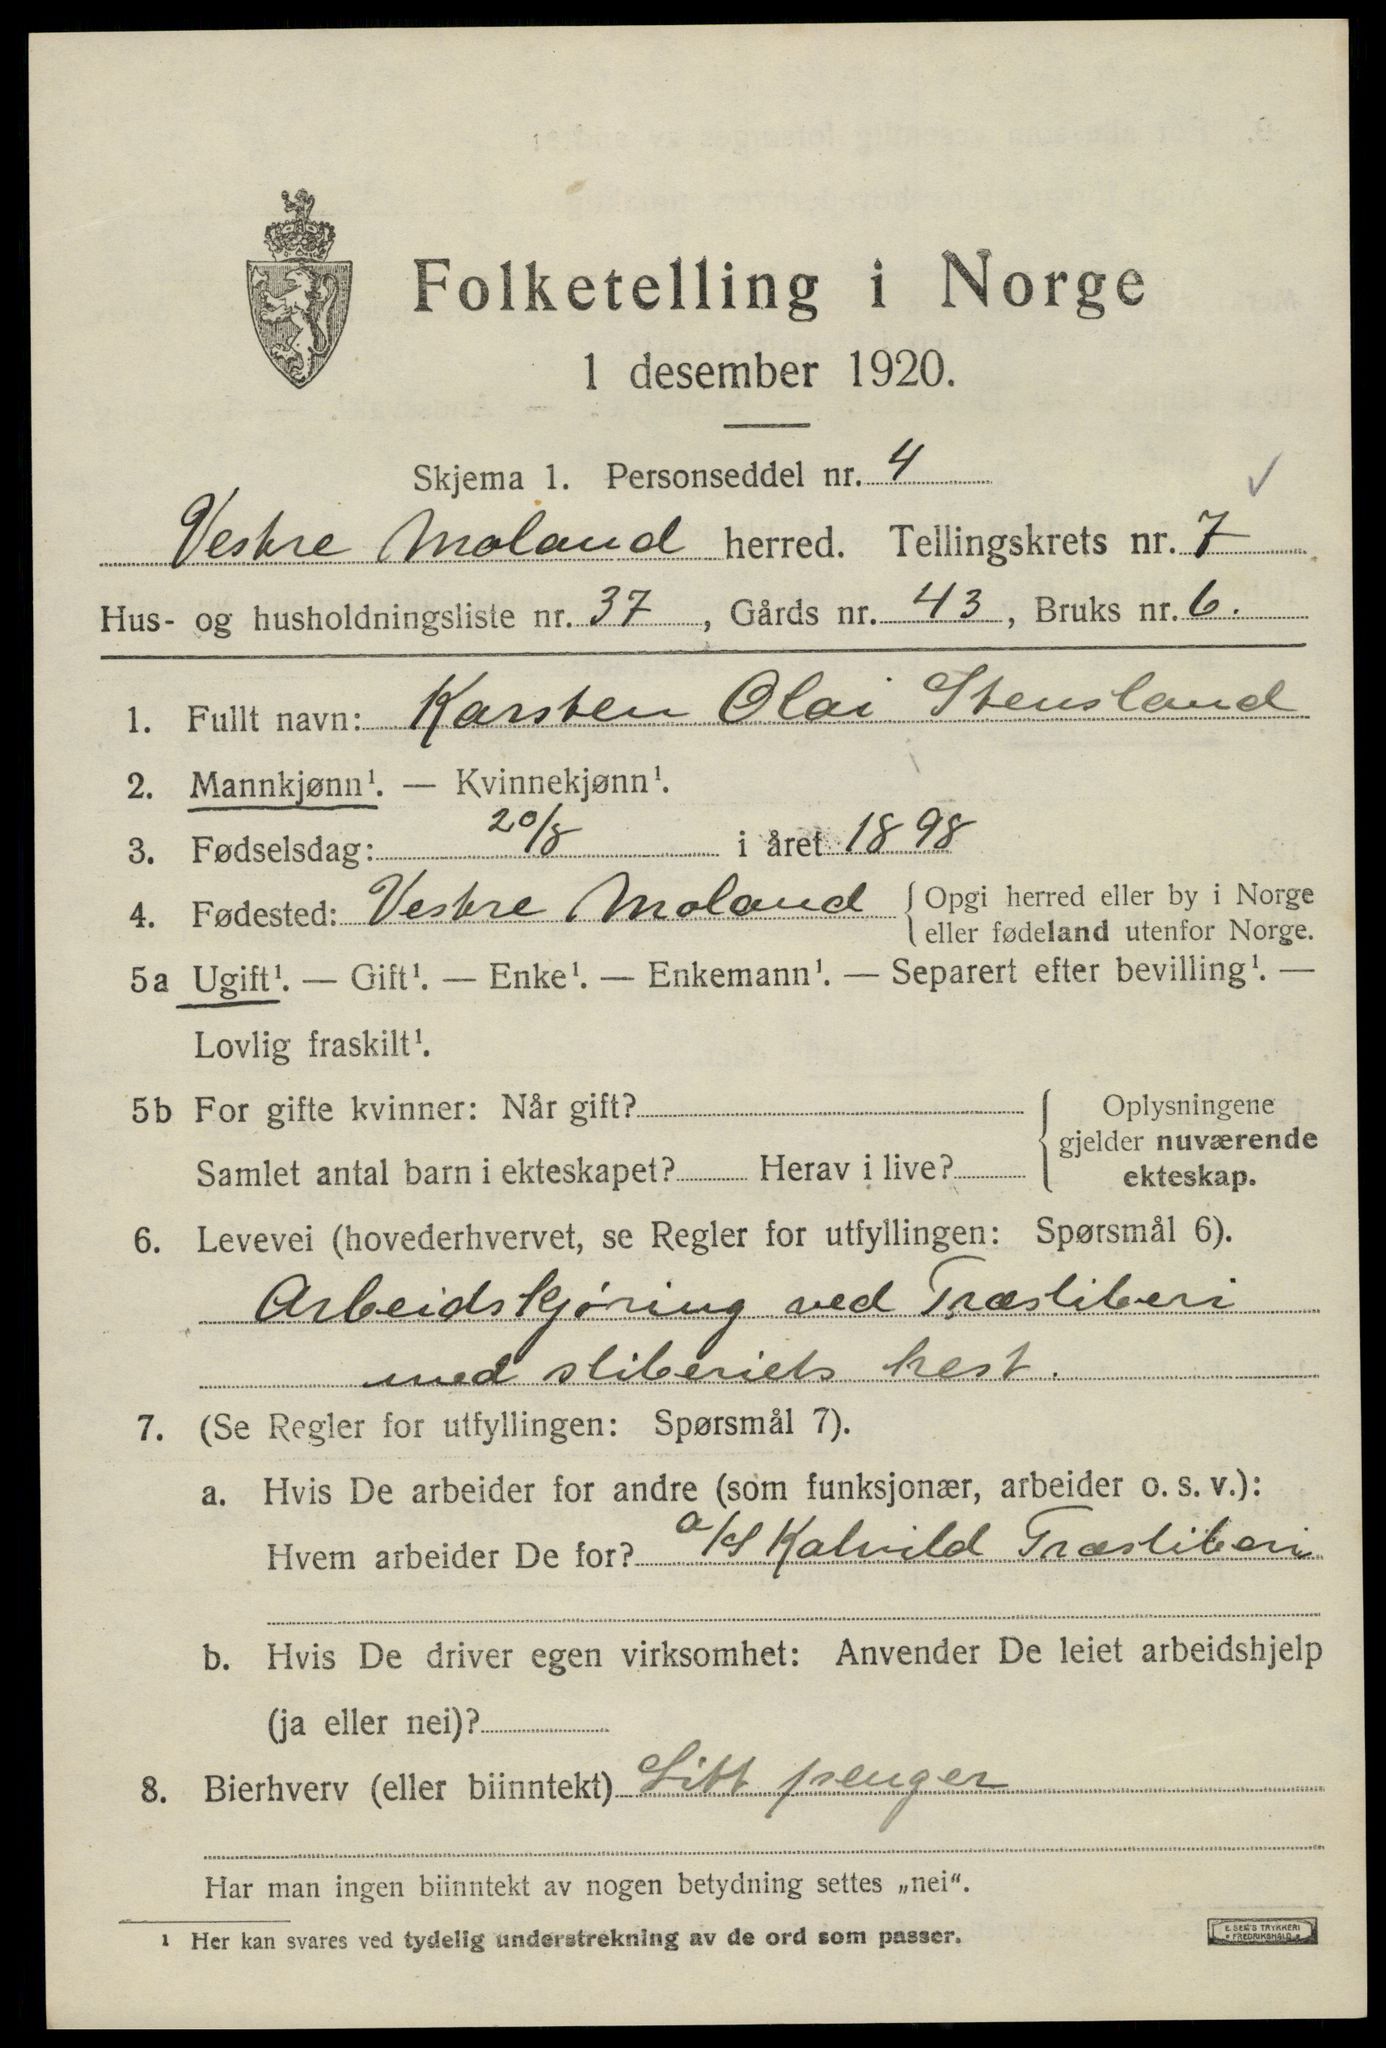 Folketelling i Norge
1 desember 1920.
Skjema 1. Personseddel nr. 4
Vestre Moland herred. Tellingskrets nr. 7
Hus- og husholdningsliste nr. 37, Gårds nr. 43, Bruks nr. 6.
1. Fullt navn: Karsten Olai Stensland
2. Mannkjønn¹. — Kvinnekjønn¹.
3. Fødselsdag: 20/8 i året 1898
4. Fødested: Vestre Moland { Opgi herred eller by i Norge
eller fødeland utenfor Norge.
5a Ugift¹. — Gift¹. — Enke¹. — Enkemann¹. — Separert efter bevilling¹. —
Lovlig fraskilt¹.
5b For gifte kvinner: Når gift?
Samlet antal barn i ekteskapet? Herav i live?
Oplysningene
gjelder nuværende
ekteskap.
6. Levevei (hovederhvervet, se Regler for utfyllingen: Spørsmål 6).
Arbeidskjøring ved Træsliberi
med sliberiets hest.
7. (Se Regler for utfyllingen: Spørsmål 7).
a. Hvis De arbeider for andre (som funksjonær, arbeider o. s. v.):
Hvem arbeider De for? a/S Kalvild Træsliberi
b. Hvis De driver egen virksomhet: Anvender De leiet arbeidshjelp
(ja eller nei)?
8. Bierhverv (eller biinntekt) Litt penger
Har man ingen biinntekt av nogen betydning settes „nei“.
¹ Her kan svares ved tydelig understrekning av de ord som passer.
E. SEM'S TRYKKERI
FREDRIKSHALD